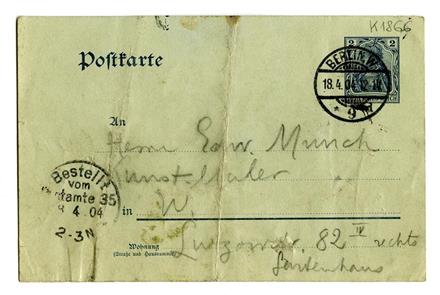 K1866
2 2
Postkarte
BERLIN, W.
18.4.04.12-1N.
* 9
An
Herrn Edw. Munch
Kunst-Maler
Bestellt
vom
Postamte 35
4 04
2-3N
in W.
Lützowstr. 82 IV rechts
Wohnung
(Straße und Hausnummer)
Gartenhaus